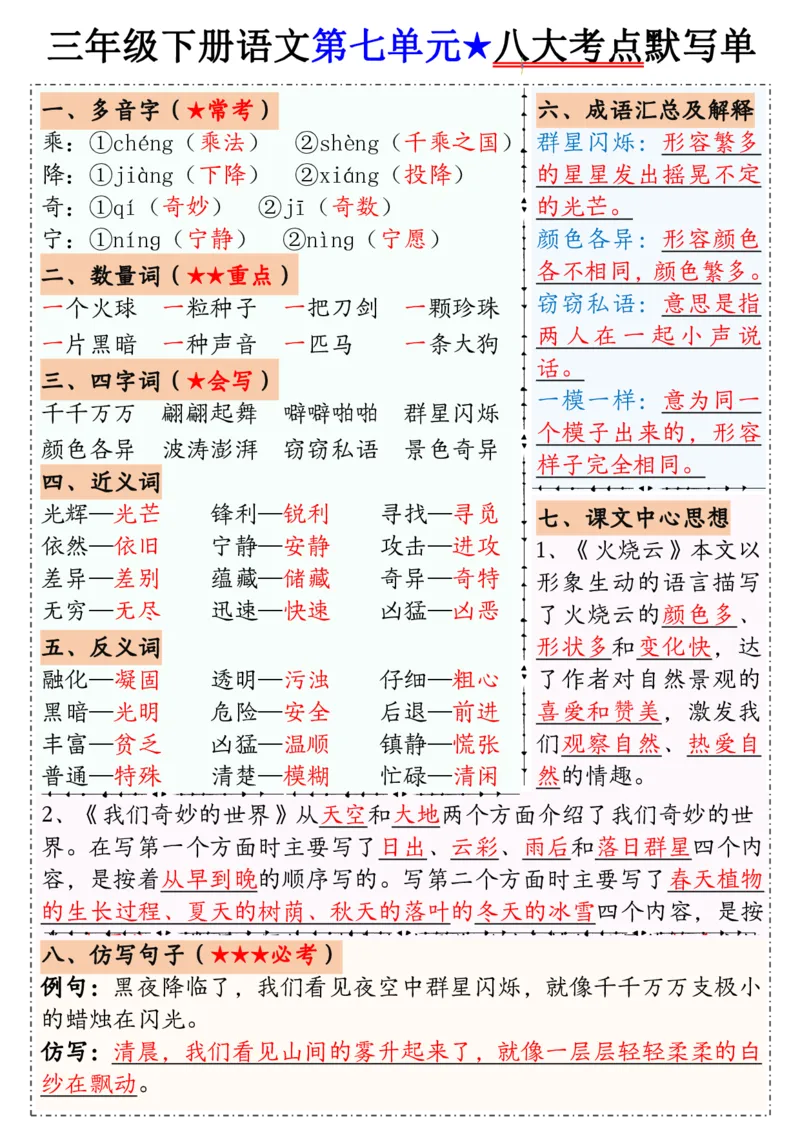 三年级下册语文第七单元★八大考点默写单
一、多音字（★常考）
乘：①chéng（乘法） ②shèng（千乘之国）
降：①jiàng（下降） ②xiáng（投降）
奇：①qí（奇妙） ②jī（奇数）
宁：①níng（宁静） ②nìng（宁愿）
二、数量词（★★重点）
一个火球 一粒种子 一把刀剑 一颗珍珠
一片黑暗 一种声音 一匹马 一条大狗
三、四字词（★会写）
千千万万 翩翩起舞 噼噼啪啪 群星闪烁
颜色各异 波涛澎湃 窃窃私语 景色奇异
四、近义词
光辉—光芒 锋利—锐利 寻找—寻觅
依然—依旧 宁静—安静 攻击—进攻
差异—差别 蕴藏—储藏 奇异—奇特
无穷—无尽 迅速—快速 凶猛—凶恶
五、反义词
融化—凝固 透明—污浊 仔细—粗心
黑暗—光明 危险—安全 后退—前进
丰富—贫乏 凶猛—温顺 镇静—慌张
普通—特殊 清楚—模糊 忙碌—清闲
六、成语汇总及解释
群星闪烁：形容繁多
的星星发出摇晃不定
的光芒。
颜色各异：形容颜色
各不相同，颜色繁多。
窃窃私语：意思是指
两人在一起小声说
话。
一模一样：意为同一
个模子出来的，形容
样子完全相同。
七、课文中心思想
1、《火烧云》本文以
形象生动的语言描写
了火烧云的颜色多、
形状多和变化快，达
了作者对自然景观的
喜爱和赞美，激发我
们观察自然、热爱自
然的情趣。
2、《我们奇妙的世界》从天空和大地两个方面介绍了我们奇妙的世
界。在写第一个方面时主要写了日出、云彩、雨后和落日群星四个内
容，是按着从早到晚的顺序写的。写第二个方面时主要写了春天植物
的生长过程、夏天的树荫、秋天的落叶的冬天的冰雪四个内容，是按
八、仿写句子（★★★必考）
例句：黑夜降临了，我们看见夜空中群星闪烁，就像千千万万支极小
的蜡烛在闪光。
仿写：清晨，我们看见山间的雾升起来了，就像一层层轻轻柔柔的白
纱在飘动。